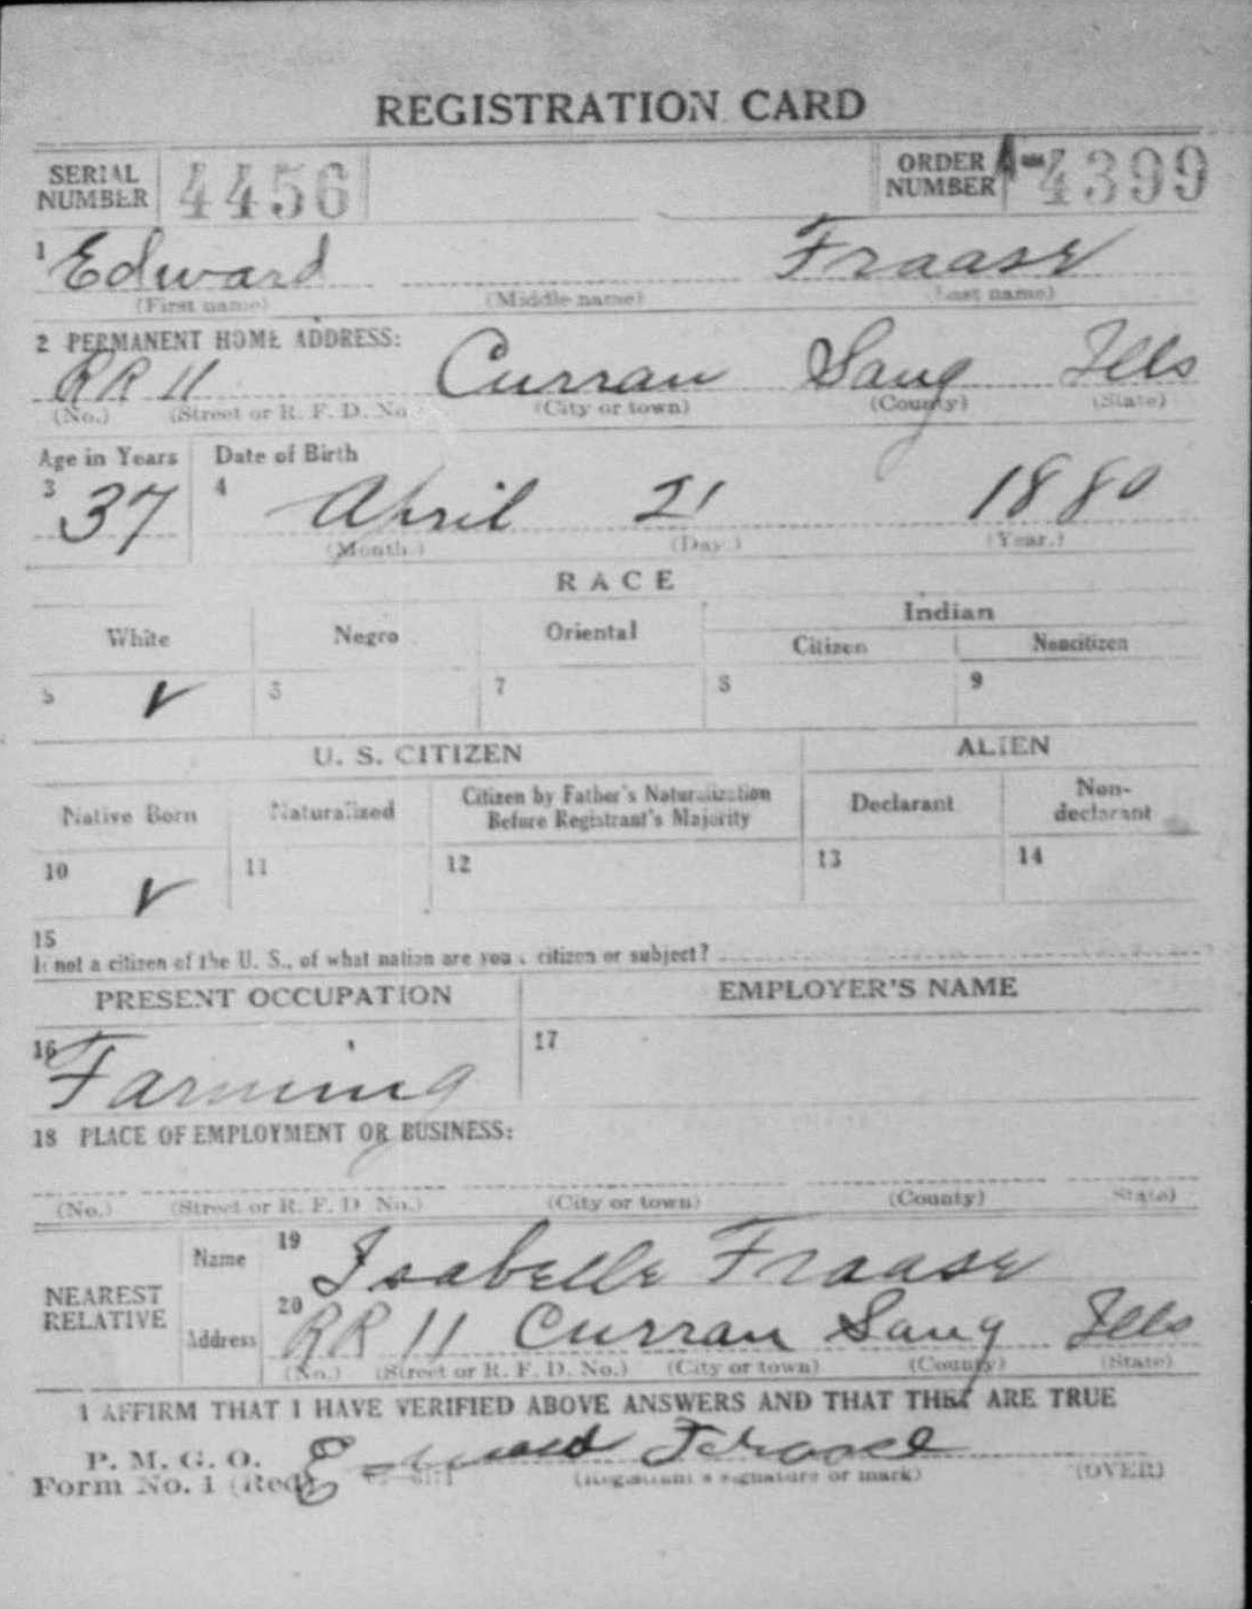 REGISTRATION CARD
SERIAL NUMBER 4456 ORDER NUMBER A-4399
1 Edward Fraase
(First name) (Middle name) (Last name)
2 PERMANENT HOME ADDRESS:
RR 11 Curran Sang Ills
(No.) (Street or R. F. D. No.) (City or town) (County) (State)
Age in Years Date of Birth
3 37 4 April 21 1880
(Month.) (Day.) (Year.)
RACE
White Negro Oriental Indian
Citizen Noncitizen
5 ✓ 6 7 8 9
U. S. CITIZEN ALIEN
Native Born Naturalized Citizen by Father's Naturalization Before Registrant's Majority Declarant Non-declarant
10 ✓ 11 12 13 14
15
If not a citizen of the U. S., of what nation are you a citizen or subject?
PRESENT OCCUPATION EMPLOYER'S NAME
16 Farming 17
18 PLACE OF EMPLOYMENT OR BUSINESS:
(No.) (Street or R. F. D. No.) (City or town) (County) (State)
NEAREST RELATIVE
Name 19 Isabelle Fraase
Address 20 RR 11 Curran Sang Ills
(No.) (Street or R. F. D. No.) (City or town) (County) (State)
I AFFIRM THAT I HAVE VERIFIED ABOVE ANSWERS AND THAT THEY ARE TRUE
P. M. G. O.
Form No. 1 (Red) Edward Fraase
(Registrant's signature or mark) (OVER)